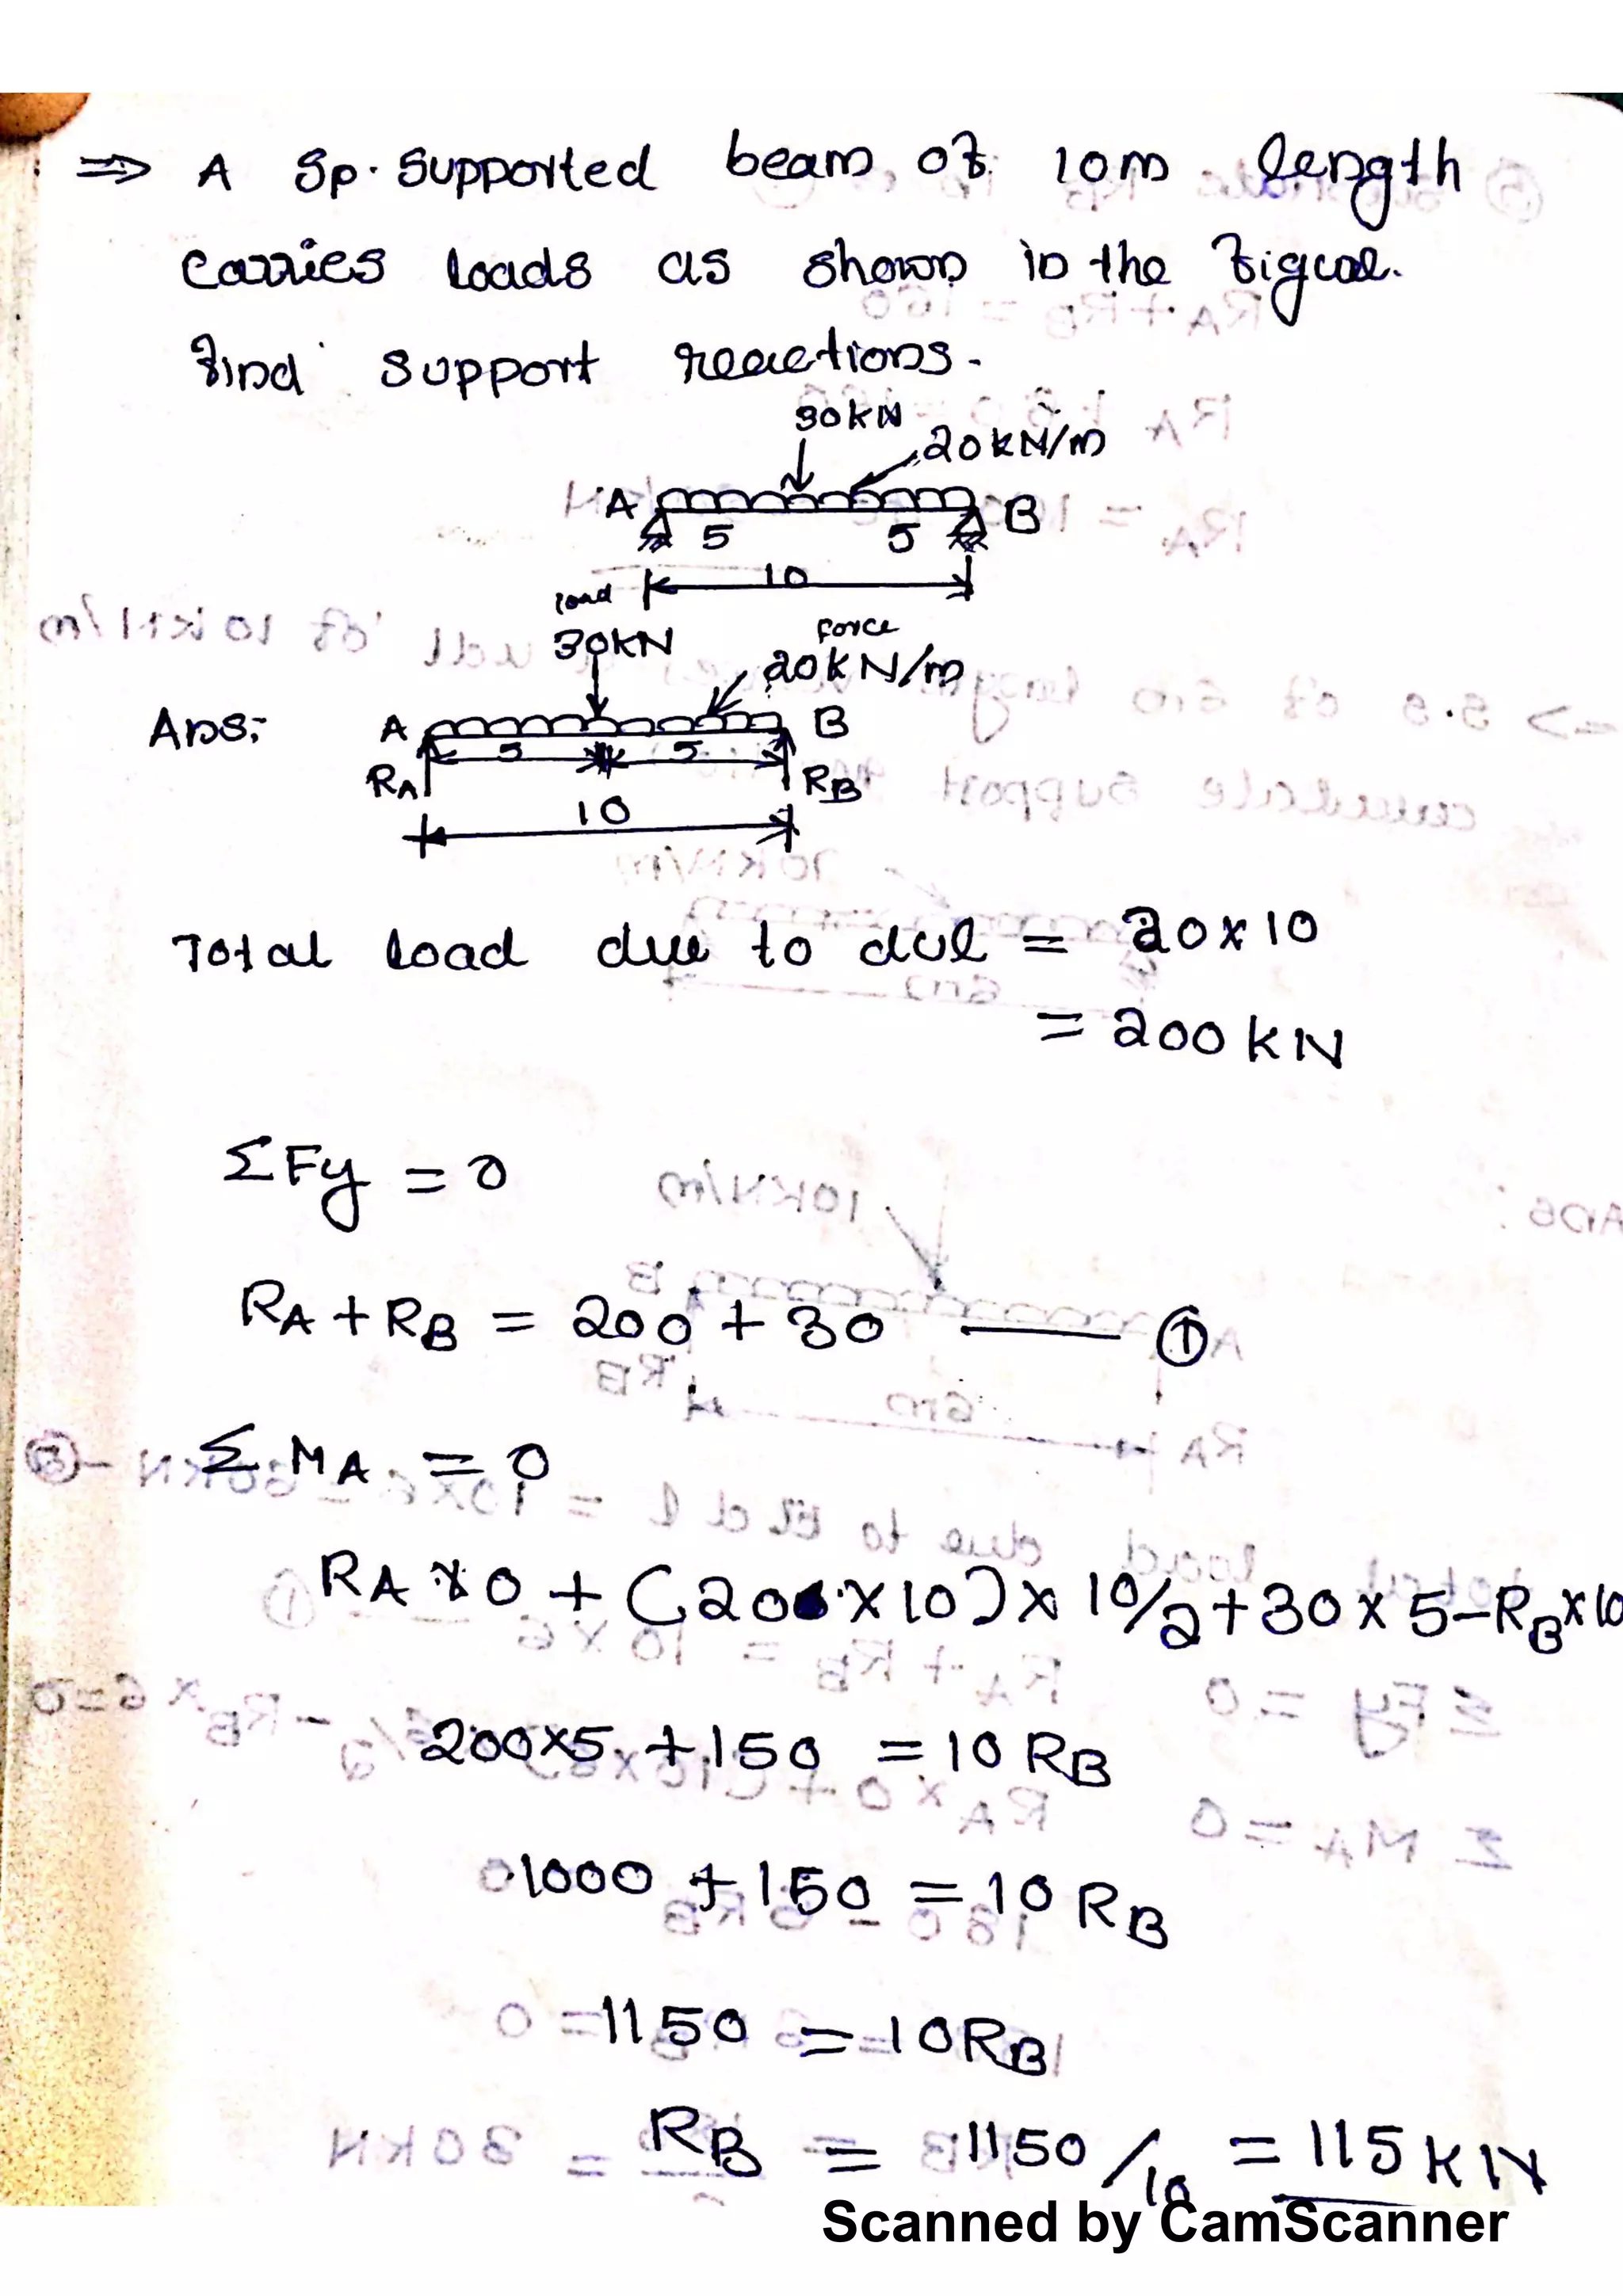 ⇒ A Sp. Supported beam of 10m length
carries loads as shown in the figure.
find support reactions.
30kN
20kN/m
A B
5 5
10
load
30kN
force
20kN/m
Ans:
A B
5 5
RA RB
10
Total load due to dul = 20×10
= 200 kN
ΣFy = 0
RA + RB = 200 + 30 —— ①
Σ MA = 0
RA × 0 + (20 × 10) × 10/2 + 30 × 5 - RB × 10
200×5 + 150 = 10 RB
1000 + 150 = 10 RB
1150 = 10RB
RB = 1150/10 = 115 kN
Scanned by CamScanner